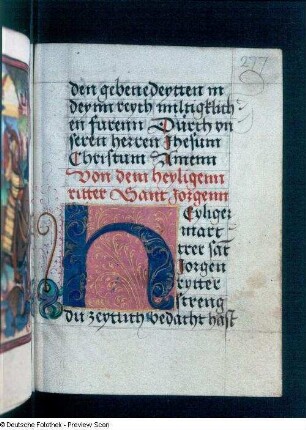 277
den gebenedeytten in
deynn reych miltigklich
en furenn Durch vn
seren herren Jhesum
Christum Amenn
Von dem heyligenn
ritter Sant Jorgenn
Heyliger
mart
rer sāt
Jorgen
rytter
streng
du zeytlich bedacht hast
© Deutsche Fotothek - Preview Scan